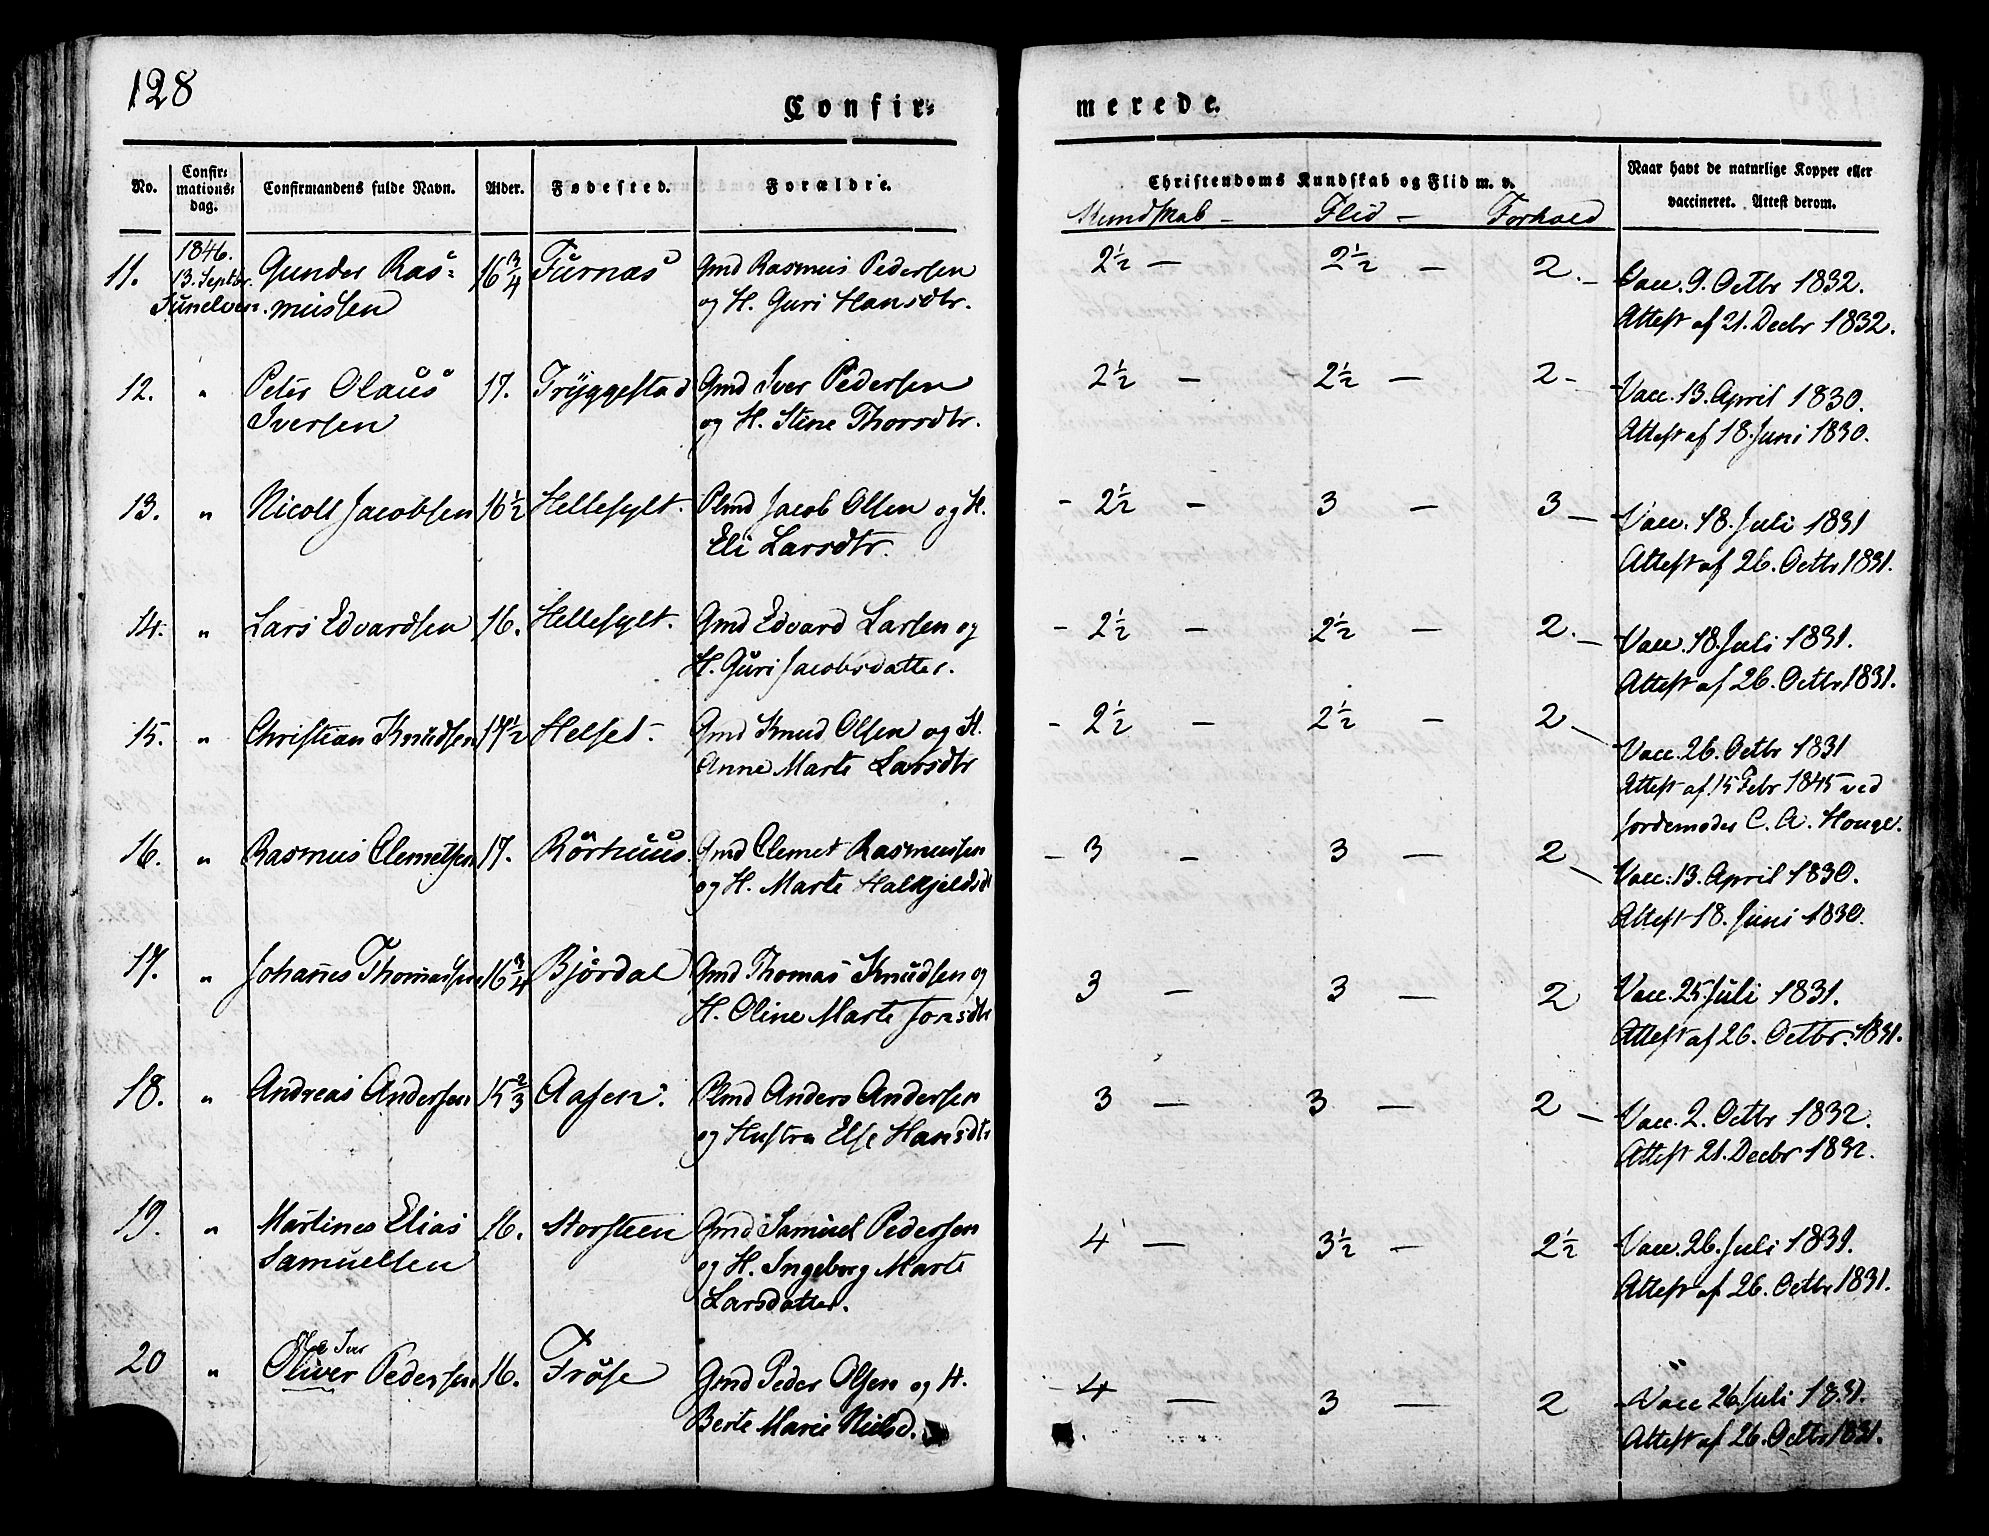 128
Confir-
merede.
No.
Confir-
mations-
dag.
Confirmandens fulde Navn.
Alder.
Fødested.
Forældre.
Christendoms Kundskab og Flid m. v.
Naar havt de naturlige Kopper eller
vaccineret. Attest derom.
Kundskab - Flid - Forhold
1846.
11. 13. Septbr. Gunder Ras- 16 3/4 Furnas Gmd Rasmus Pedersen 2 1/2 — 2 1/2 — 2. - Vacc. 9. Octbr 1832.
Sunelven. mussen og H. Guri Hansdtr. Attest af 21. Decbr 1832.
12. " Peter Olaus 17. Tryggestad Gmd Iver Pedersen 2 1/2 — 2 1/2 — 2 - Vacc. 13. April 1830.
Iversen og H. Stine Thorsdtr. Attest af 18. Juni 1830.
13. " Nicolt Jacobsen 16 1/2 Hellesylt. Plmd Jacob Olsen og H. - 2 1/2 — 3 — 3 — Vacc. 18. Juli 1831
Eli Larsdtr. Attest af 26. Octbr 1831.
14. " Lars Edvardsen 16. Hellesylt. Gmd Edvard Larsen og - 2 1/2 — 2 1/2 — 2. — Vacc. 18. Juli 1831.
H. Guri Jacobsdatter. Attest af 26. Octbr 1831.
15. " Christian Knudsen 14 1/2 Helset. Gmd Knud Olsen og H. - 2 1/2 — 2 1/2 — 2 — Vacc. 26. Octbr 1831
Anne Marte Larsdtr Attest af 15 Febr 1845 ved
Jordemoder C. A. Houge.
16. " Rasmus Clemetsen 17. Rörhuus. Gmd Clemet Rasmussen - 3 — 3 — 2 — Vacc. 13. April 1830.
og H. Marte Halkjeldsdt Attest 18. Juni 1830.
17. " Johannes Thomassen 16 3/4 Bjørdal Gmd Thomas Knudsen og 3 — 3 — 2 Vacc. 25 Juli 1831.
H. Oline Marte Jonsdtr Attest af 26. Octbr. 1831.
18. " Andreas Andersen 15 2/3 Aasen. Plmd Anders Andersen 3 — 3 — 2 — Vacc. 2. Octbr 1832.
og Hustru Else Hansdtr Attest 21. Decbr 1832.
19. " Martines Elias 16. Storsteen Gmd Samuel Pedersen 4 — 3 1/2 — 2 1/2 Vacc. 26. Juli 1831.
Samuelsen og H. Ingeborg Marte Attest af 26. Octbr 1831.
Larsdatter.
Ole Iver
20 " Oliver Pedersen 16. Frøse Gmd Peder Olsen og H. 4 — 3 — 2 Vacc 26. Juli 1831.
Berte Marie Nielsd. Attest af 26. Octbr 1831.